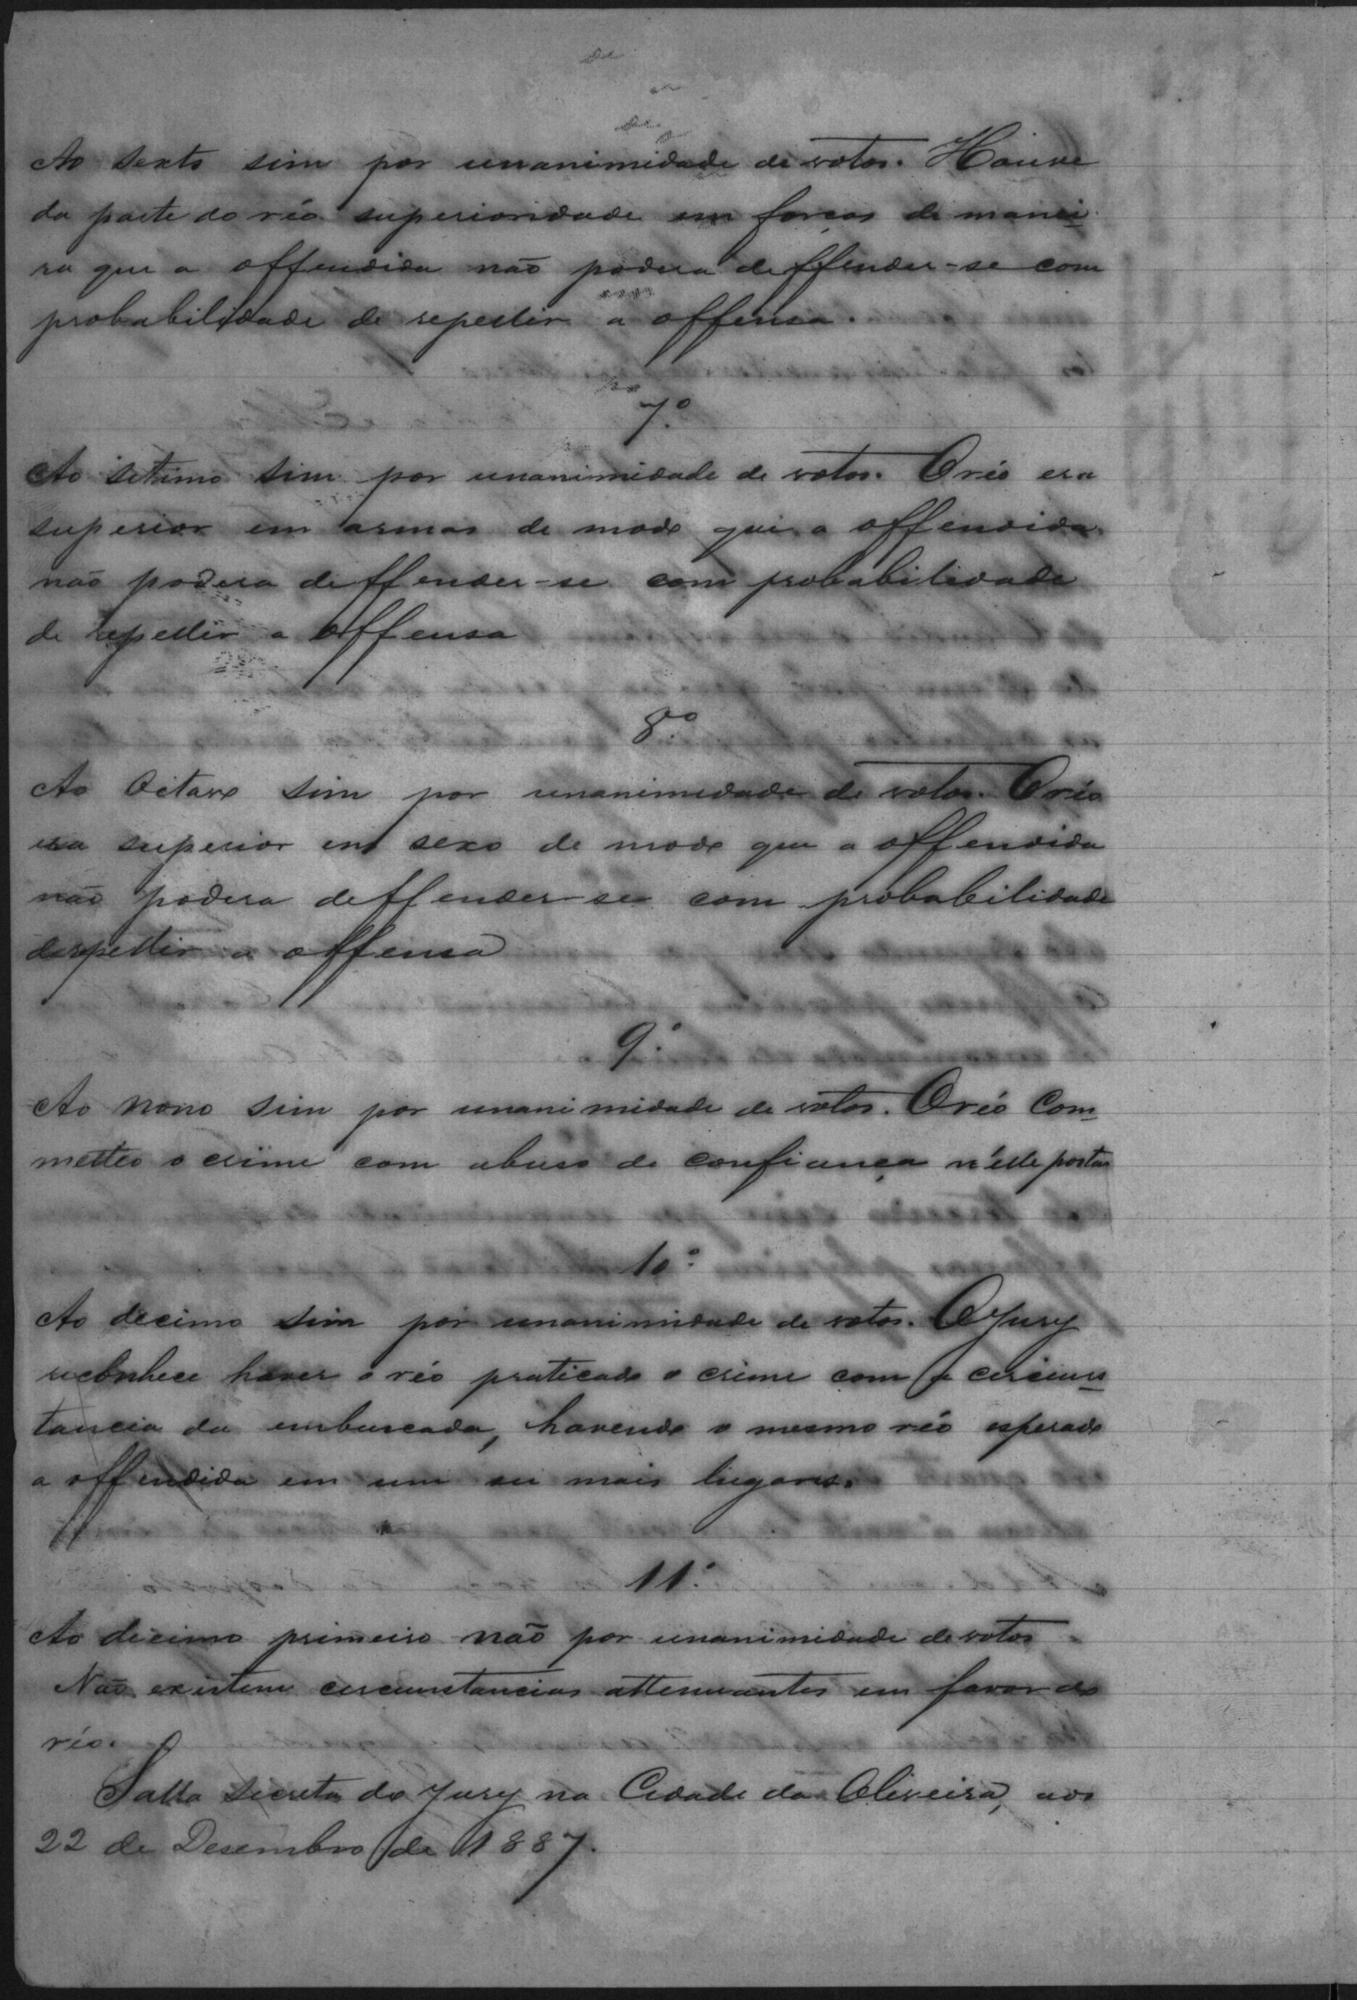 Ao sexto sim por unanimidade de votos. Houve
da parte do réo superioridade em forças de manei-
ra que a offendida não podera deffender-se com
probabilidade de repellir a offensa.
7.º
Ao setimo sim por unanimidade de votos. O réo era
superior em armas de modo que a offendida
não podera deffender-se com probabilidade
de repellir a offensa
8.º
Ao Oitavo sim por unanimidade de votos. O réo
era superior em sexo de modo que a offendida
não podera deffender-se com probabilidade
de repellir a offensa
9.º
Ao nono sim por unanimidade de votos. O réo com-
metteo o crime com abuso de confiança n'elle posta
10.º
Ao decimo sim por unanimidade de votos. O Jury
reconhece haver o réo praticado o crime com a circuns-
tancia da emburcada, havendo o mesmo réo esperado
a offendida em um ou mais lugares.
11.º
Ao decimo primeiro não por unanimidade de votos
Não existem circumstancias attenuantes em favor do
réo.
Salla secreta do Jury na Cidade da Oliveira, aos
22 de Desembro de 1887.